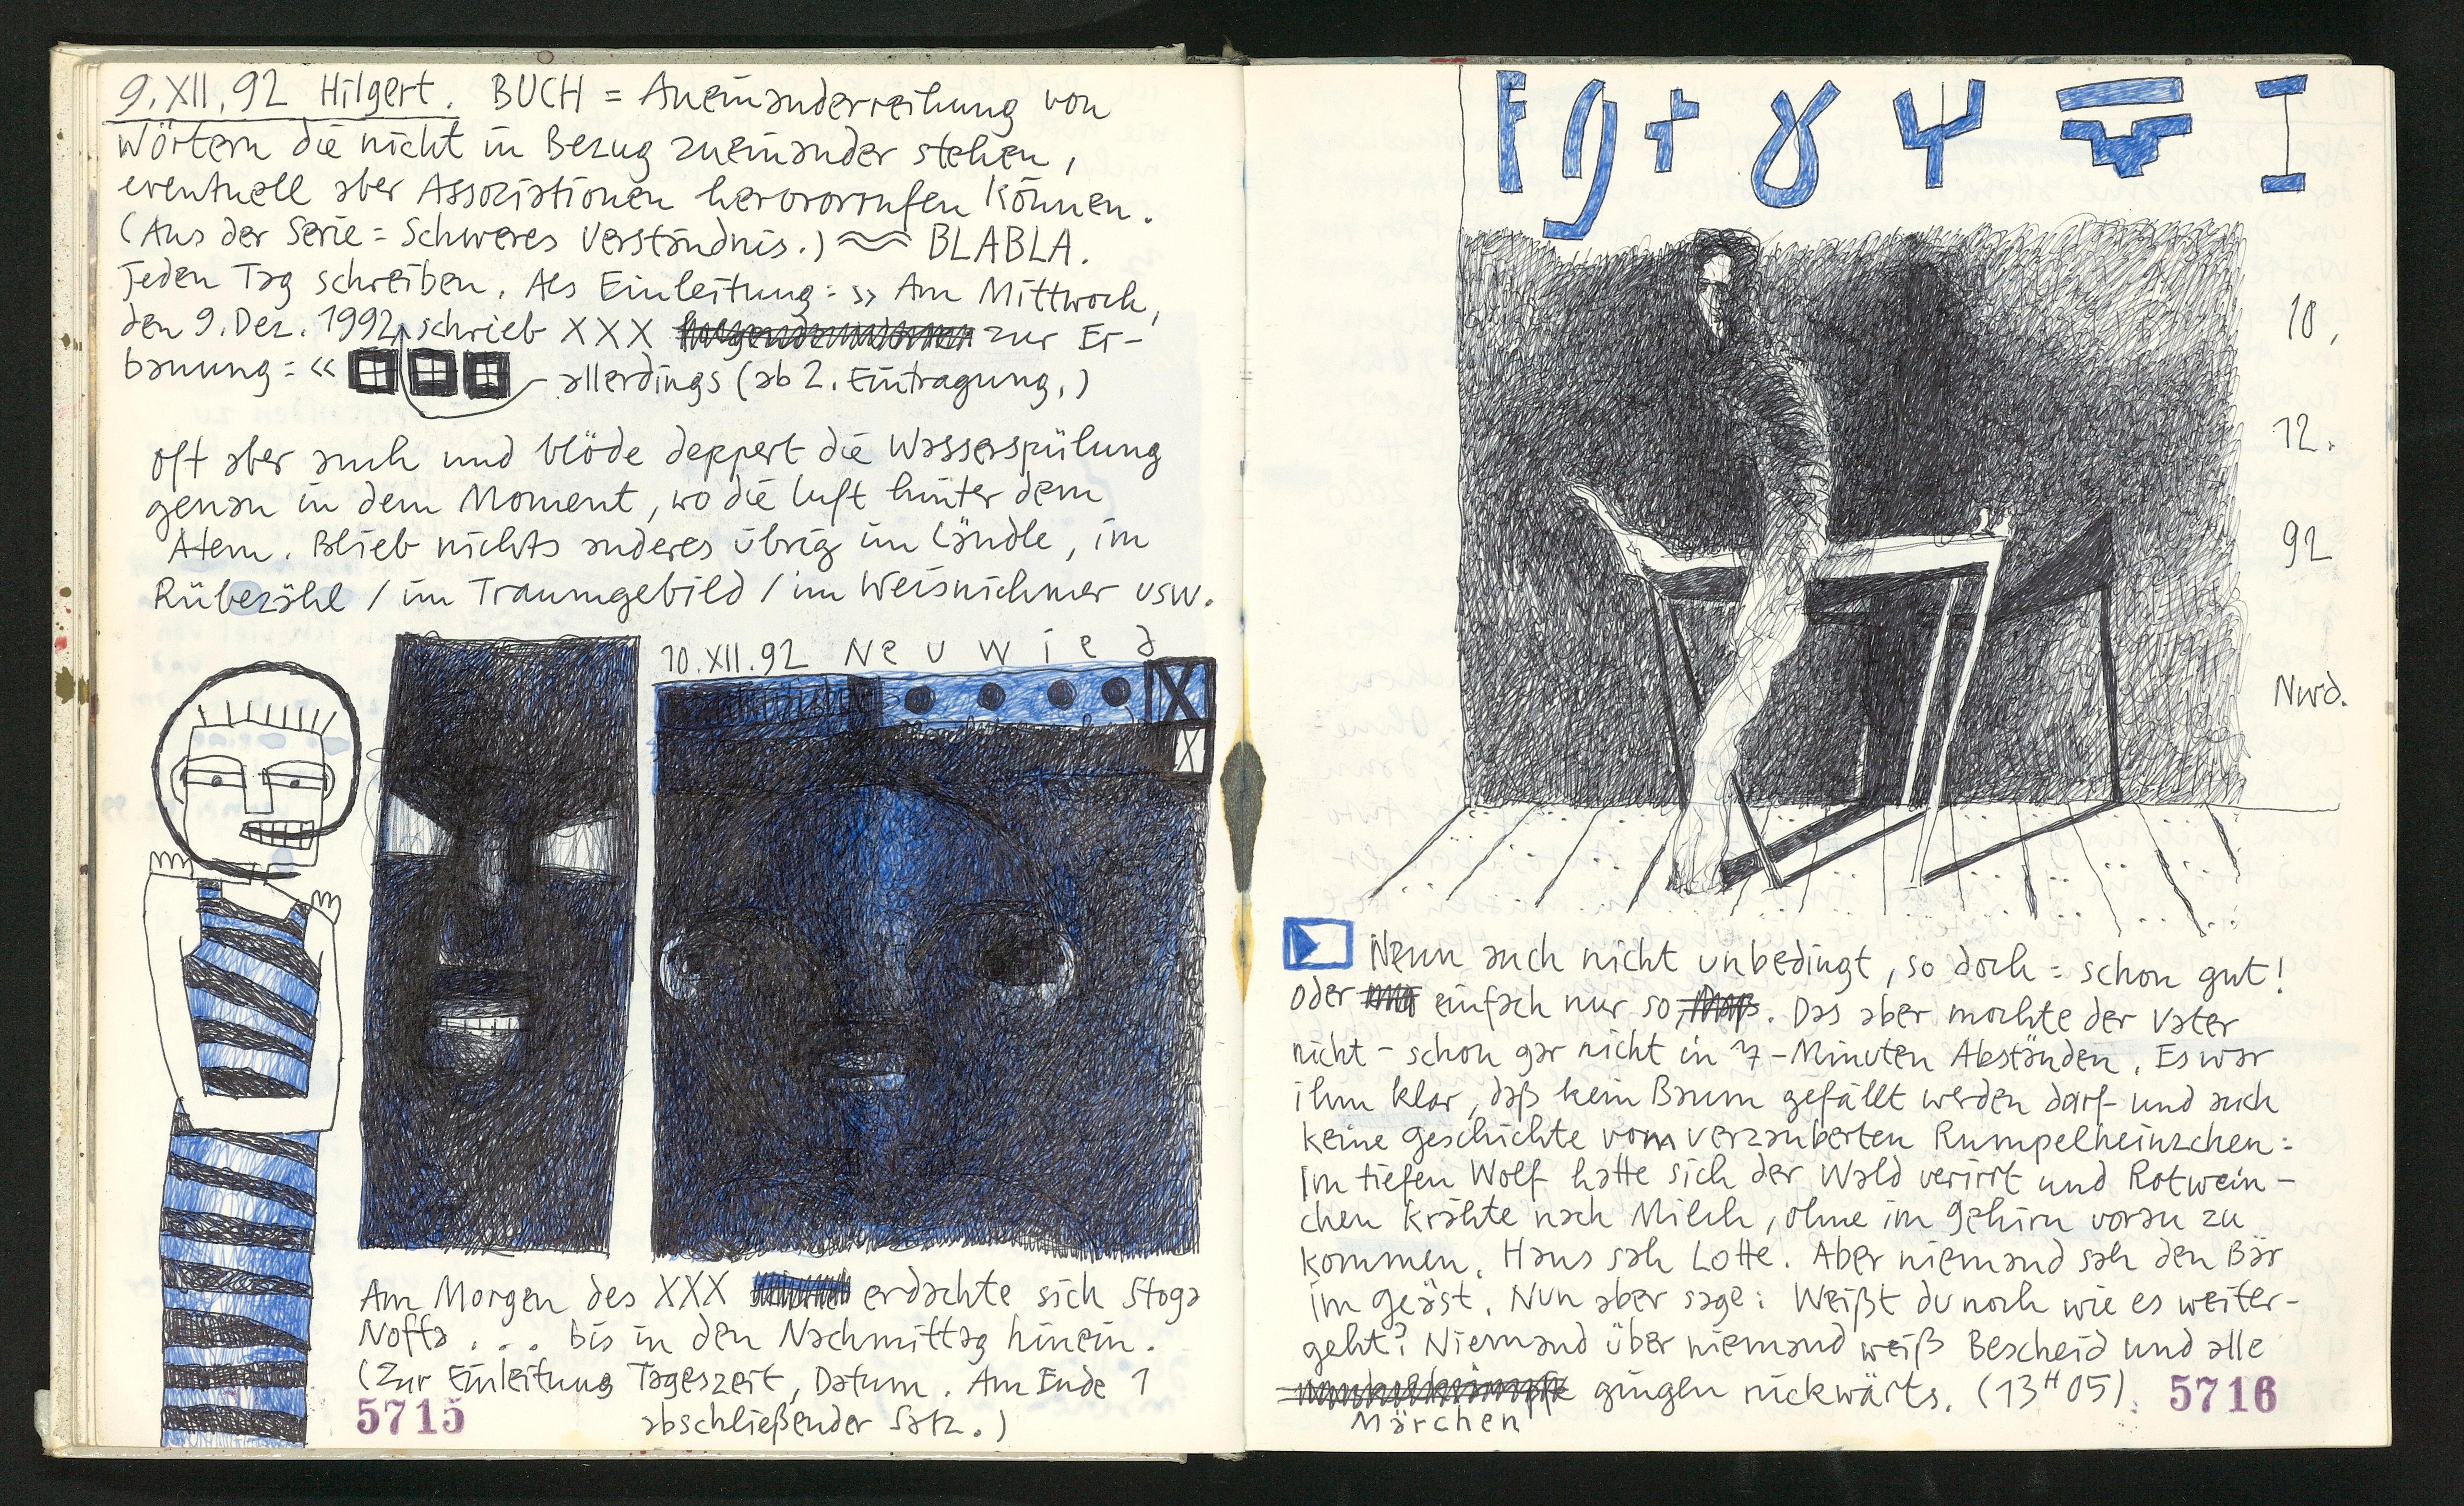 9.XII.92 Hilgert. BUCH = Aneinanderreihung von
Wörtern die nicht in Bezug zueinander stehen,
eventuell aber Assoziationen hervorrufen können.
(Aus der Serie = Schweres Verständnis.) ≈ BLABLA.
Jeden Tag schreiben. Als Einleitung: » Am Mittwoch,
den 9. Dez. 1992, schrieb XXX zur Er-
bauung: «
allerdings (ab 2. Eintragung.)
oft aber auch und blöde deppert die Wasserspülung
genau in dem Moment, wo die Luft hinter dem
Atem. Blieb nichts anderes übrig im Ländle, im
Rübezähl / im Traumgebild / im Weisnichmer usw.
10.XII.92 Neuwied
X
X
Am Morgen des XXX erdachte sich Stoga
Noffa . . . bis in den Nachmittag hinein.
(Zur Einleitung Tageszeit, Datum. Am Ende 1
abschließender Satz.)
5715
10.
12.
92
Nwd.
Nenn auch nicht unbedingt, so doch = schon gut!
oder einfach nur so. Das aber mochte der Vater
nicht – schon gar nicht in 7-Minuten Abständen. Es war
ihm klar, daß kein Baum gefällt werden darf und auch
keine Geschichte vom verzauberten Rumpelheinzchen:
Im tiefen Wolf hatte sich der Wald verirrt und Rotwein-
chen krähte nach Milch, ohne im Gehirn voran zu
kommen. Hans sah Lotte. Aber niemand sah den Bär
im Geäst. Nun aber sage: Weißt du noch wie es weiter-
geht? Niemand über niemand weiß Bescheid und alle
Märchen gingen rückwärts. (13H05).
5716